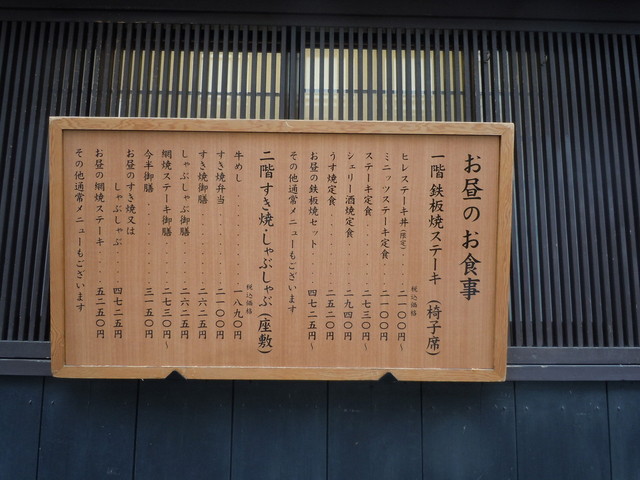 お昼のお食事
一階 鉄板焼ステーキ (椅子席)
税込価格
ヒレステーキ丼(限定)・・・二一〇〇円〜
ミニッツステーキ定食・・・二一〇〇円
ステーキ定食・・・・・二七三〇円〜
シェリー酒焼定食・・・二九四〇円
うす焼定食・・・・・二五二〇円
お昼の鉄板焼セット・・四七二五円〜
その他通常メニューもございます
二階 すき焼・しゃぶしゃぶ (座敷)
税込価格
牛めし・・・・・・一八九〇円
すき焼弁当・・・・・二一〇〇円
すき焼御膳・・・・・二六二五円
しゃぶしゃぶ御膳・・・二六二五円
網焼ステーキ御膳・・・二七三〇円〜
今半御膳・・・・・・三一五〇円
お昼のすき焼又は
しゃぶしゃぶ・・・・四七二五円
お昼の網焼ステーキ・・・五二五〇円
その他通常メニューもございます